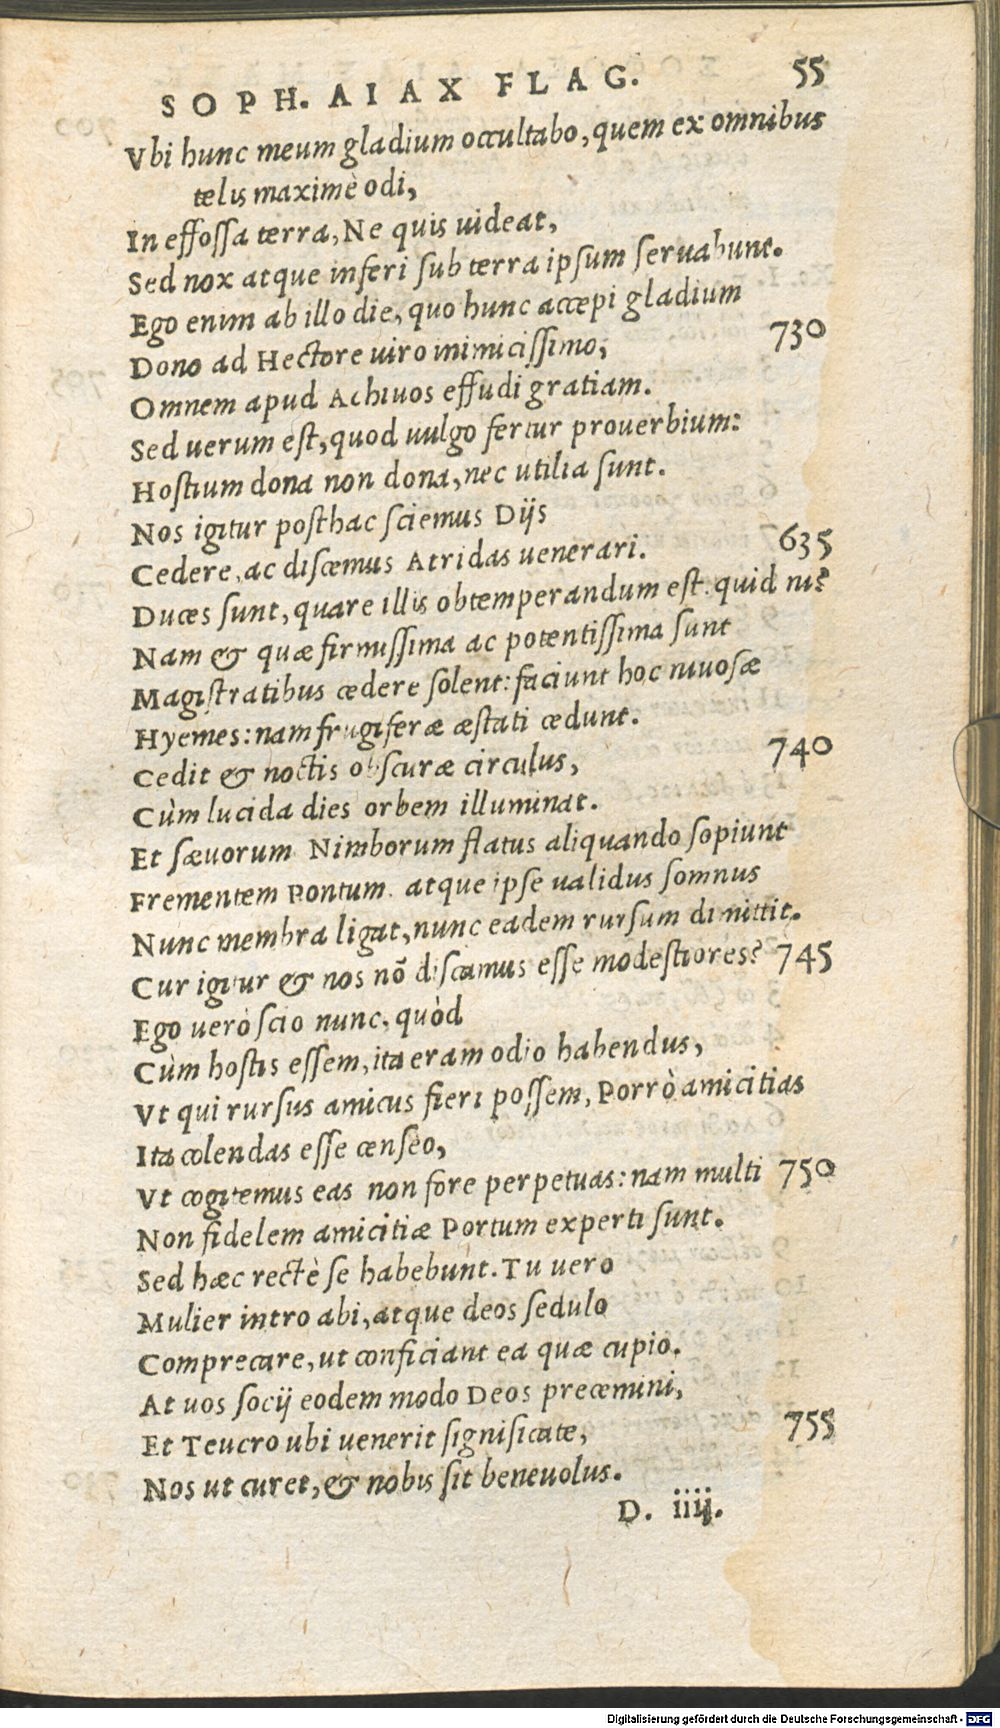 SOPH. AIAX FLAG. 55
Vbi hunc meum gladium occultabo, quem ex omnibus
telis maximè odi,
In effossa terra, Ne quis uideat,
Sed nox atque inferi sub terra ipsum seruabunt.
Ego enim ab illo die, quo hunc accepi gladium
Dono ad Hectore uiro inimicissimo, 730
Omnem apud Achiuos effudi gratiam.
Sed uerum est, quod uulgo fertur prouerbium:
Hostium dona non dona, nec utilia sunt.
Nos igitur posthac sciemus Dijs
Cedere, ac discemus Atridas uenerari. 635
Duces sunt, quare illis obtemperandum est. quid ni?
Nam & quæ firmissima ac potentissima sunt
Magistratibus cedere solent: faciunt hoc niuosæ
Hyemes: nam frugiferæ æstati cedunt.
Cedit & noctis obscuræ circulus, 740
Cùm lucida dies orbem illuminat.
Et sæuorum Nimborum flatus aliquando sopiunt
Frementem Pontum. atque ipse validus somnus
Nunc membra ligat, nunc eadem rursum dimittit.
Cur igitur & nos nõ discamus esse modestiores? 745
Ego uerò scio nunc, quòd
Cùm hostis essem, ita eram odio habendus,
Vt qui rursus amicus fieri possem, Porrò amicitias
Ita colendas esse censeo,
Vt cogitemus eas non fore perpetuas: nam multi 750
Non fidelem amicitiæ Portum experti sunt.
Sed hæc rectè se habebunt. Tu uero
Mulier intro abi, atque deos sedulo
Comprecare, ut conficiant ea quæ cupio.
At uos socij eodem modo Deos precemini,
Et Teucro ubi uenerit significate, 755
Nos ut curet, & nobis sit beneuolus.
D. iiij.
Digitalisierung gefördert durch die Deutsche Forschungsgemeinschaft - DFG